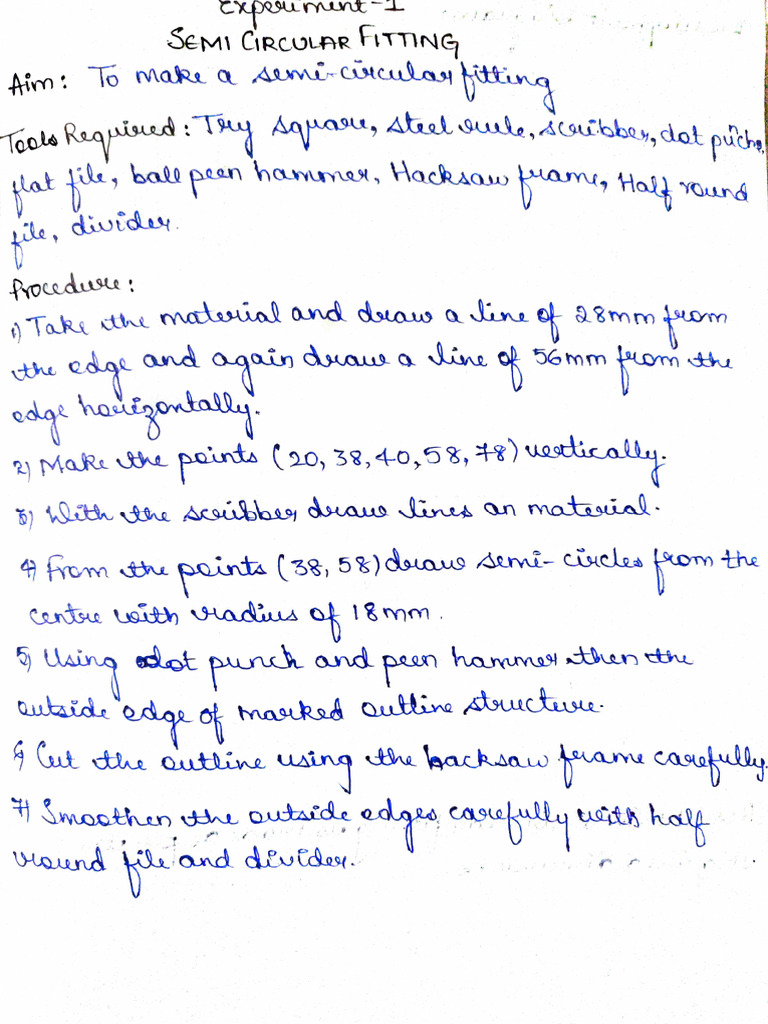 Experiment-1
SEMI CIRCULAR FITTING
Aim: To make a semi-circular fitting
Tools Required: Try square, steel rule, scribber, dot puch,
n
flat file, ball peen hammer, Hacksaw frame, Half round
file, divider.
Procedure:
1) Take the material and draw a line of 28mm from
the edge and again draw a line of 56mm from the
edge horizontally.
2) Make the points (20, 38, 40, 58, 78) vertically.
3) With the scribber draw lines on material.
4) From the points (38, 58) draw semi-circles from the
centre with radius of 18mm.
5) Using dot punch and peen hammer then the
outside edge of marked outline structure.
6) Cut the outline using the hacksaw frame carefully.
7) Smoothen the outside edges carefully with half
round file and divider.